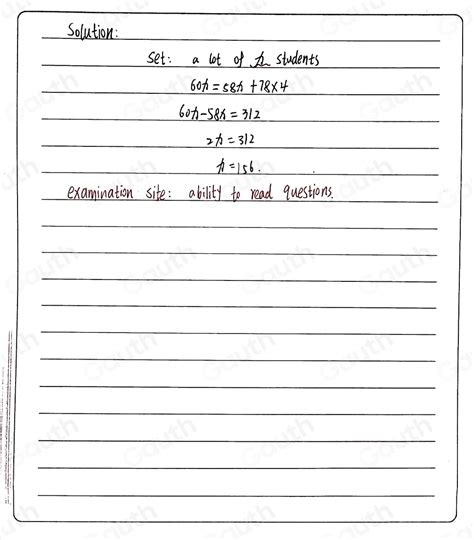 Solution:
Set: a lot of n students
60n = 58n + 78×4
60n-58n = 312
2n = 312
n = 156.
examination site: ability to read questions.